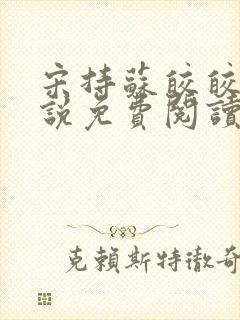 宋持蘇皎皎
說免費閱讀
克賴斯特徹奇